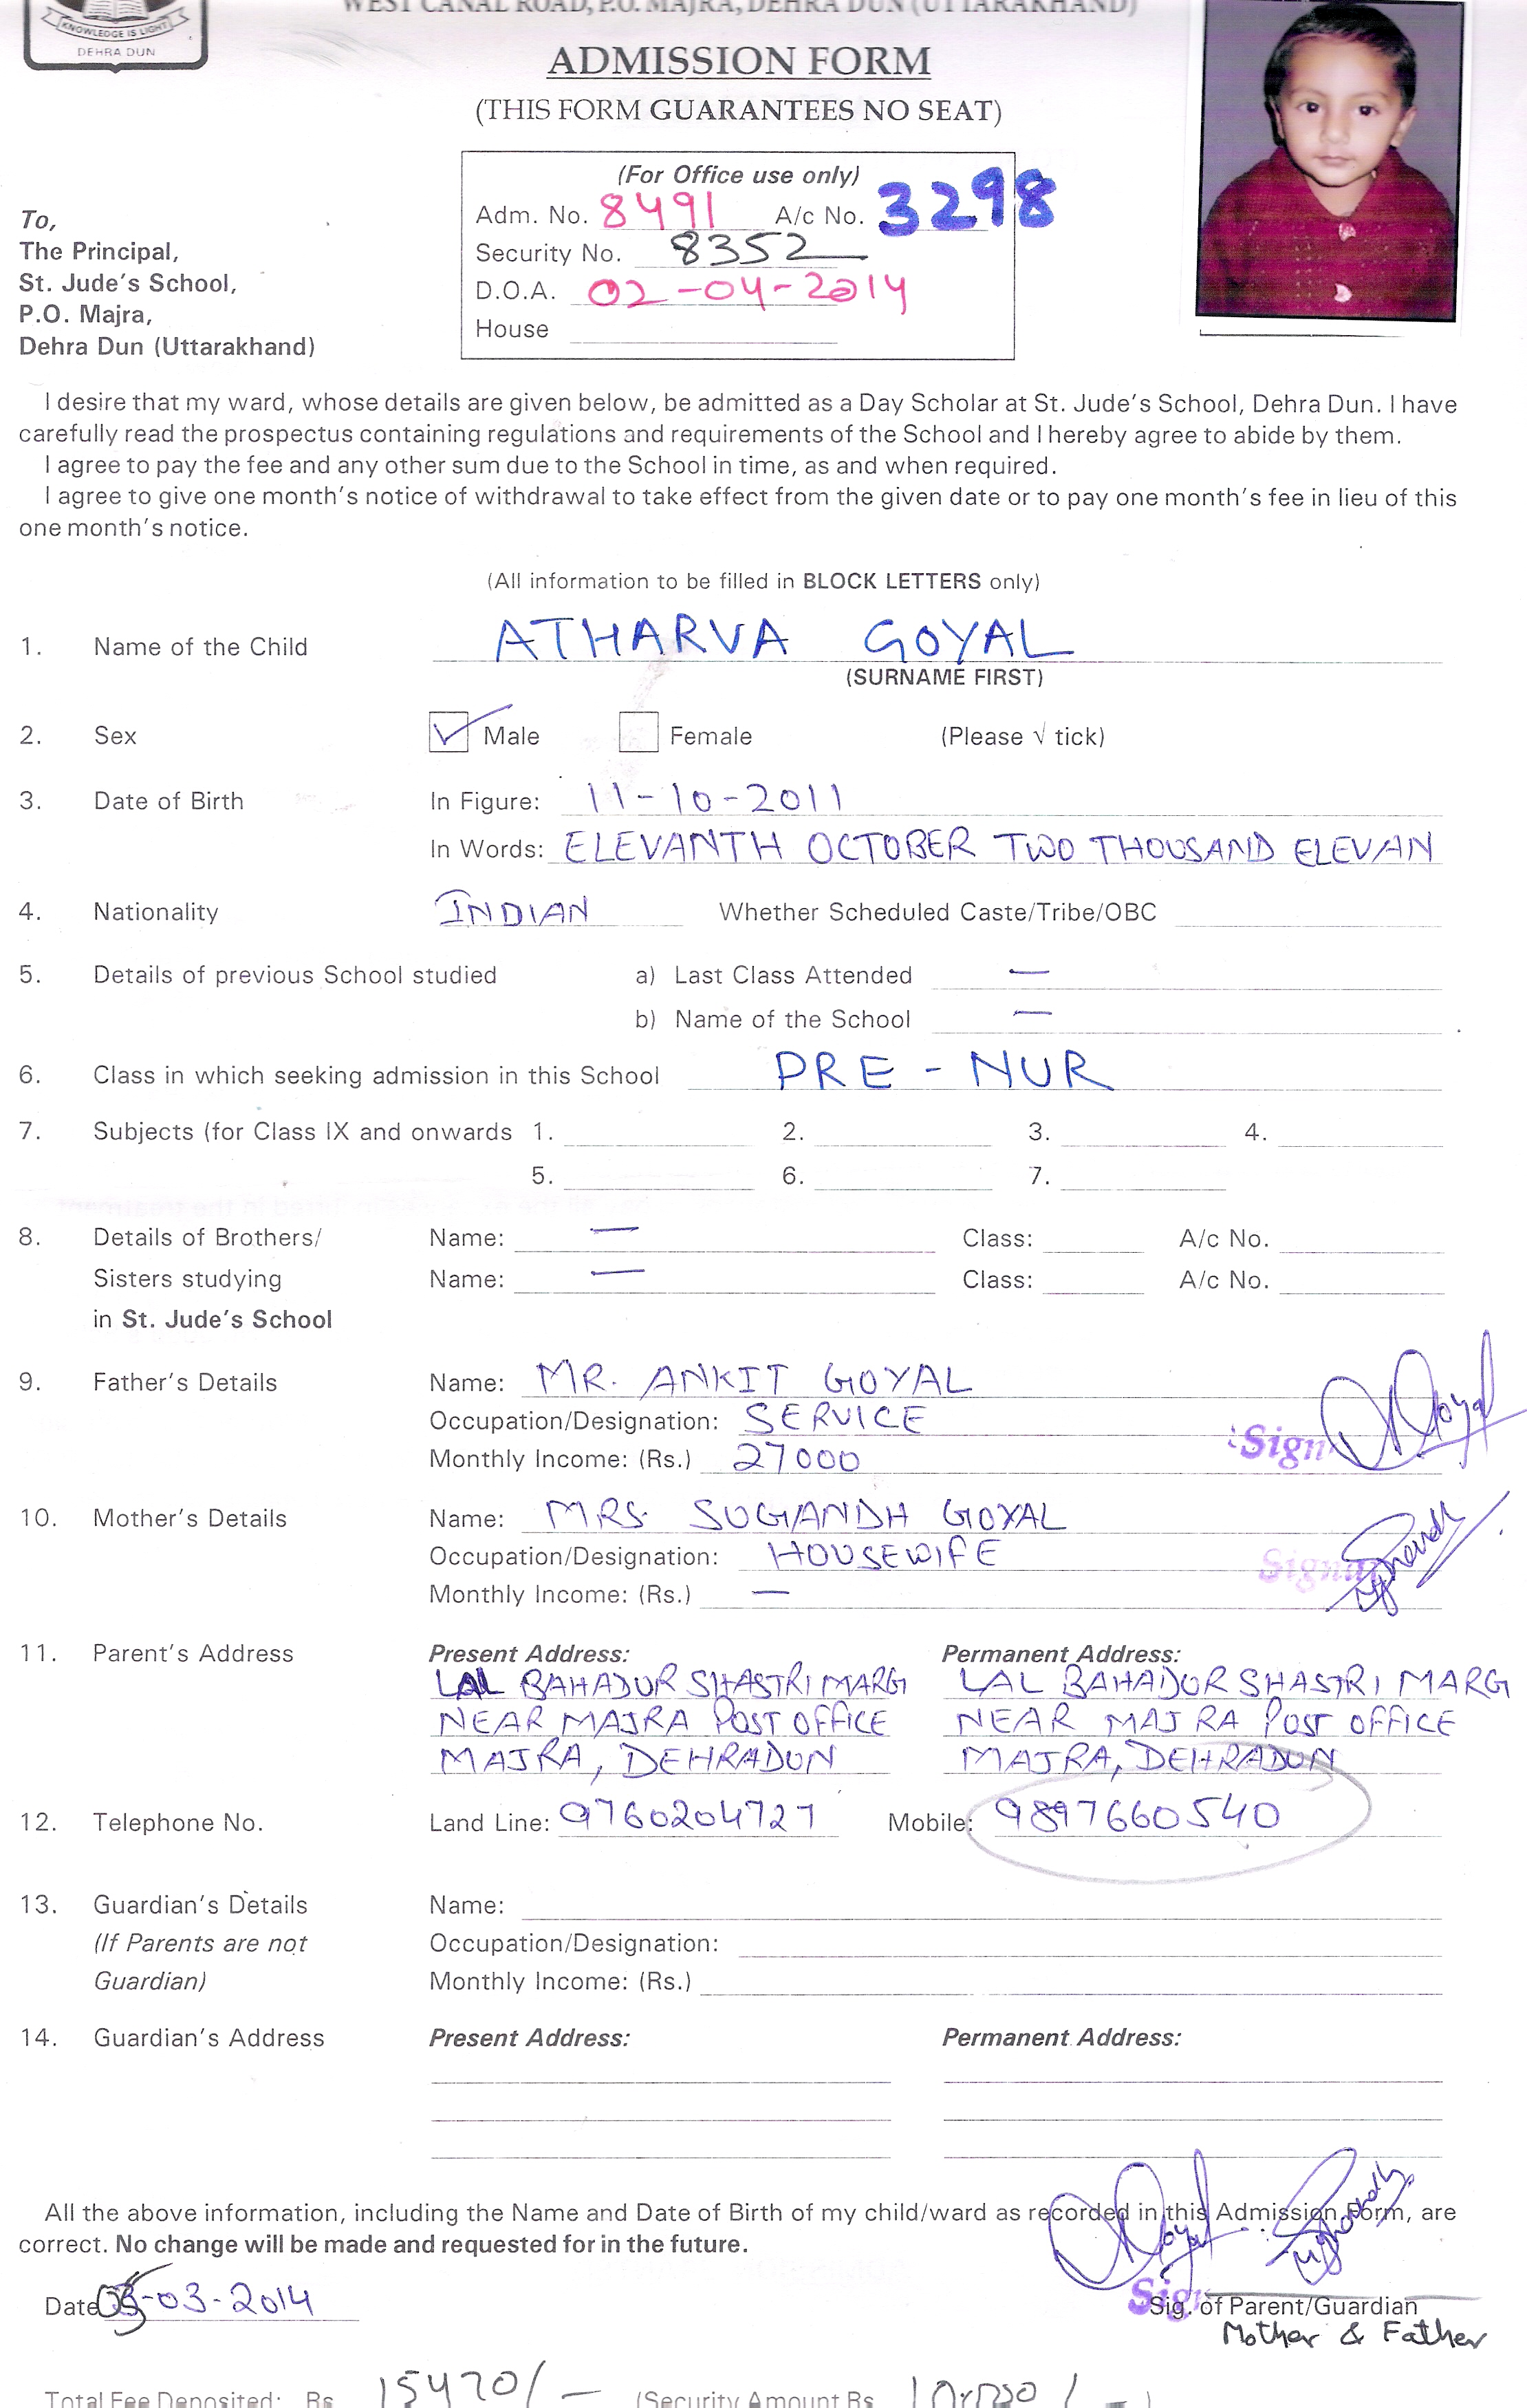 WEST CANAL ROAD, P.O. MAJRA, DEHRA DUN (UTTARAKHAND)
KNOWLEDGE IS LIGHT
DEHRA DUN
ADMISSION FORM
(THIS FORM GUARANTEES NO SEAT)
(For Office use only)
Adm. No. 8491 A/c No. 3298
Security No. 8352
D.O.A. 02-04-2014
House
To,
The Principal,
St. Jude's School,
P.O. Majra,
Dehra Dun (Uttarakhand)
I desire that my ward, whose details are given below, be admitted as a Day Scholar at St. Jude's School, Dehra Dun. I have
carefully read the prospectus containing regulations and requirements of the School and I hereby agree to abide by them.
I agree to pay the fee and any other sum due to the School in time, as and when required.
I agree to give one month's notice of withdrawal to take effect from the given date or to pay one month's fee in lieu of this
one month's notice.
(All information to be filled in BLOCK LETTERS only)
1. Name of the Child ATHARVA GOYAL
(SURNAME FIRST)
2. Sex Male Female (Please √ tick)
3. Date of Birth In Figure: 11-10-2011
In Words: ELEVANTH OCTOBER TWO THOUSAND ELEVAN
4. Nationality INDIAN Whether Scheduled Caste/Tribe/OBC
5. Details of previous School studied a) Last Class Attended —
b) Name of the School —
6. Class in which seeking admission in this School PRE - NUR
7. Subjects (for Class IX and onwards 1. 2. 3. 4.
5. 6. 7.
8. Details of Brothers/ Name: — Class: A/c No.
Sisters studying Name: — Class: A/c No.
in St. Jude's School
9. Father's Details Name: MR. ANKIT GOYAL
Occupation/Designation: SERVICE
Monthly Income: (Rs.) 27000 Sign
10. Mother's Details Name: MRS. SUGANDH GOYAL
Occupation/Designation: HOUSEWIFE
Monthly Income: (Rs.) —
11. Parent's Address Present Address: Permanent Address:
LAL BAHADUR SHASTRI MARG LAL BAHADUR SHASTRI MARG
NEAR MAJRA POST OFFICE NEAR MAJRA POST OFFICE
MAJRA, DEHRADUN MAJRA, DEHRADUN
12. Telephone No. Land Line: 9760204727 Mobile: 9897660540
13. Guardian's Details Name:
(If Parents are not Occupation/Designation:
Guardian) Monthly Income: (Rs.)
14. Guardian's Address Present Address: Permanent Address:
All the above information, including the Name and Date of Birth of my child/ward as recorded in this Admission Form, are
correct. No change will be made and requested for in the future.
Date -03-2014
Sig. of Parent/Guardian
Mother & Father
Total Fee Deposited: Rs 15470/- (Security Amount Rs )